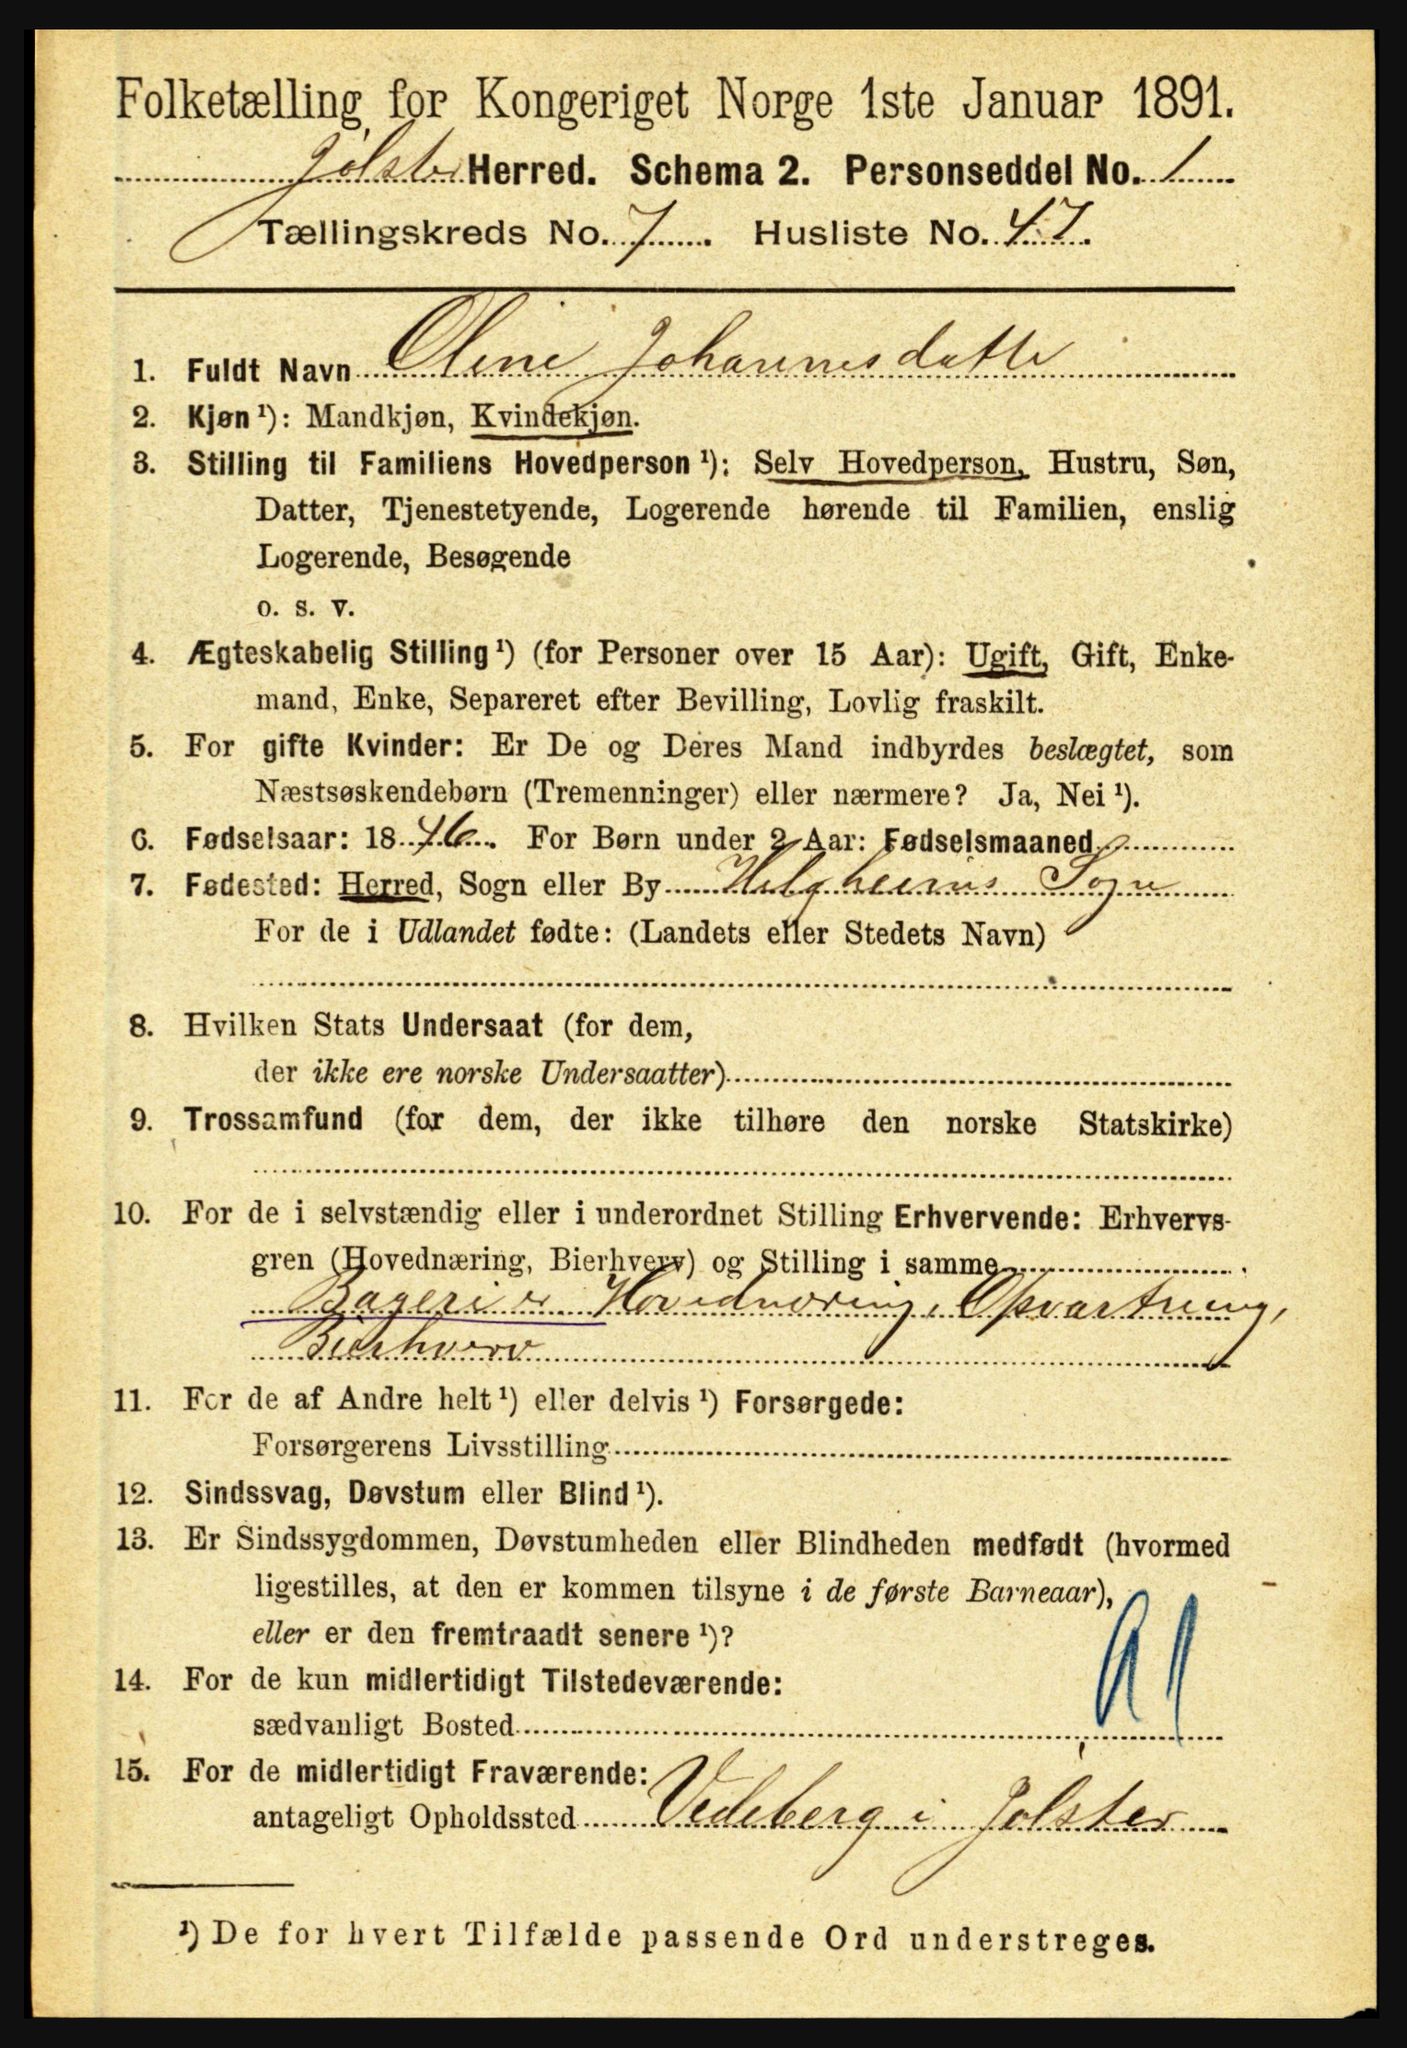 Folketælling for Kongeriget Norge 1ste Januar 1891.
Jølster Herred. Schema 2. Personseddel No. 1
Tællingskreds No. 7. Husliste No. 47.
1. Fuldt Navn Oline Johannesdatte
2. Kjøn ¹): Mandkjøn, Kvindekjøn.
3. Stilling til Familiens Hovedperson ¹): Selv Hovedperson, Hustru, Søn,
Datter, Tjenestetyende, Logerende hørende til Familien, enslig
Logerende, Besøgende
o. s. v.
4. Ægteskabelig Stilling ¹) (for Personer over 15 Aar): Ugift, Gift, Enke-
mand, Enke, Separeret efter Bevilling, Lovlig fraskilt.
5. For gifte Kvinder: Er De og Deres Mand indbyrdes beslægtet, som
Næstsøskendebørn (Tremenninger) eller nærmere? Ja, Nei ¹).
6. Fødselsaar: 1846. For Børn under 2 Aar: Fødselsmaaned
7. Fødested: Herred, Sogn eller By Helgheims Sogn
For de i Udlandet fødte: (Landets eller Stedets Navn)
8. Hvilken Stats Undersaat (for dem,
der ikke ere norske Undersaatter)
9. Trossamfund (for dem, der ikke tilhøre den norske Statskirke)
10. For de i selvstændig eller i underordnet Stilling Erhvervende: Erhvervs-
gren (Hovednæring, Bierhverv) og Stilling i samme
Bageri er Hovednæring, Opvartning,
Bierhverv
11. For de af Andre helt ¹) eller delvis ¹) Forsørgede:
Forsørgerens Livsstilling
12. Sindssvag, Døvstum eller Blind ¹).
13. Er Sindssygdommen, Døvstumheden eller Blindheden medfødt (hvormed
ligestilles, at den er kommen tilsyne i de første Barneaar),
eller er den fremtraadt senere ¹)?
14. For de kun midlertidigt Tilstedeværende:
sædvanligt Bosted
15. For de midlertidigt Fraværende:
antageligt Opholdssted Vedeberg i Jølster
¹) De for hvert Tilfælde passende Ord understreges.